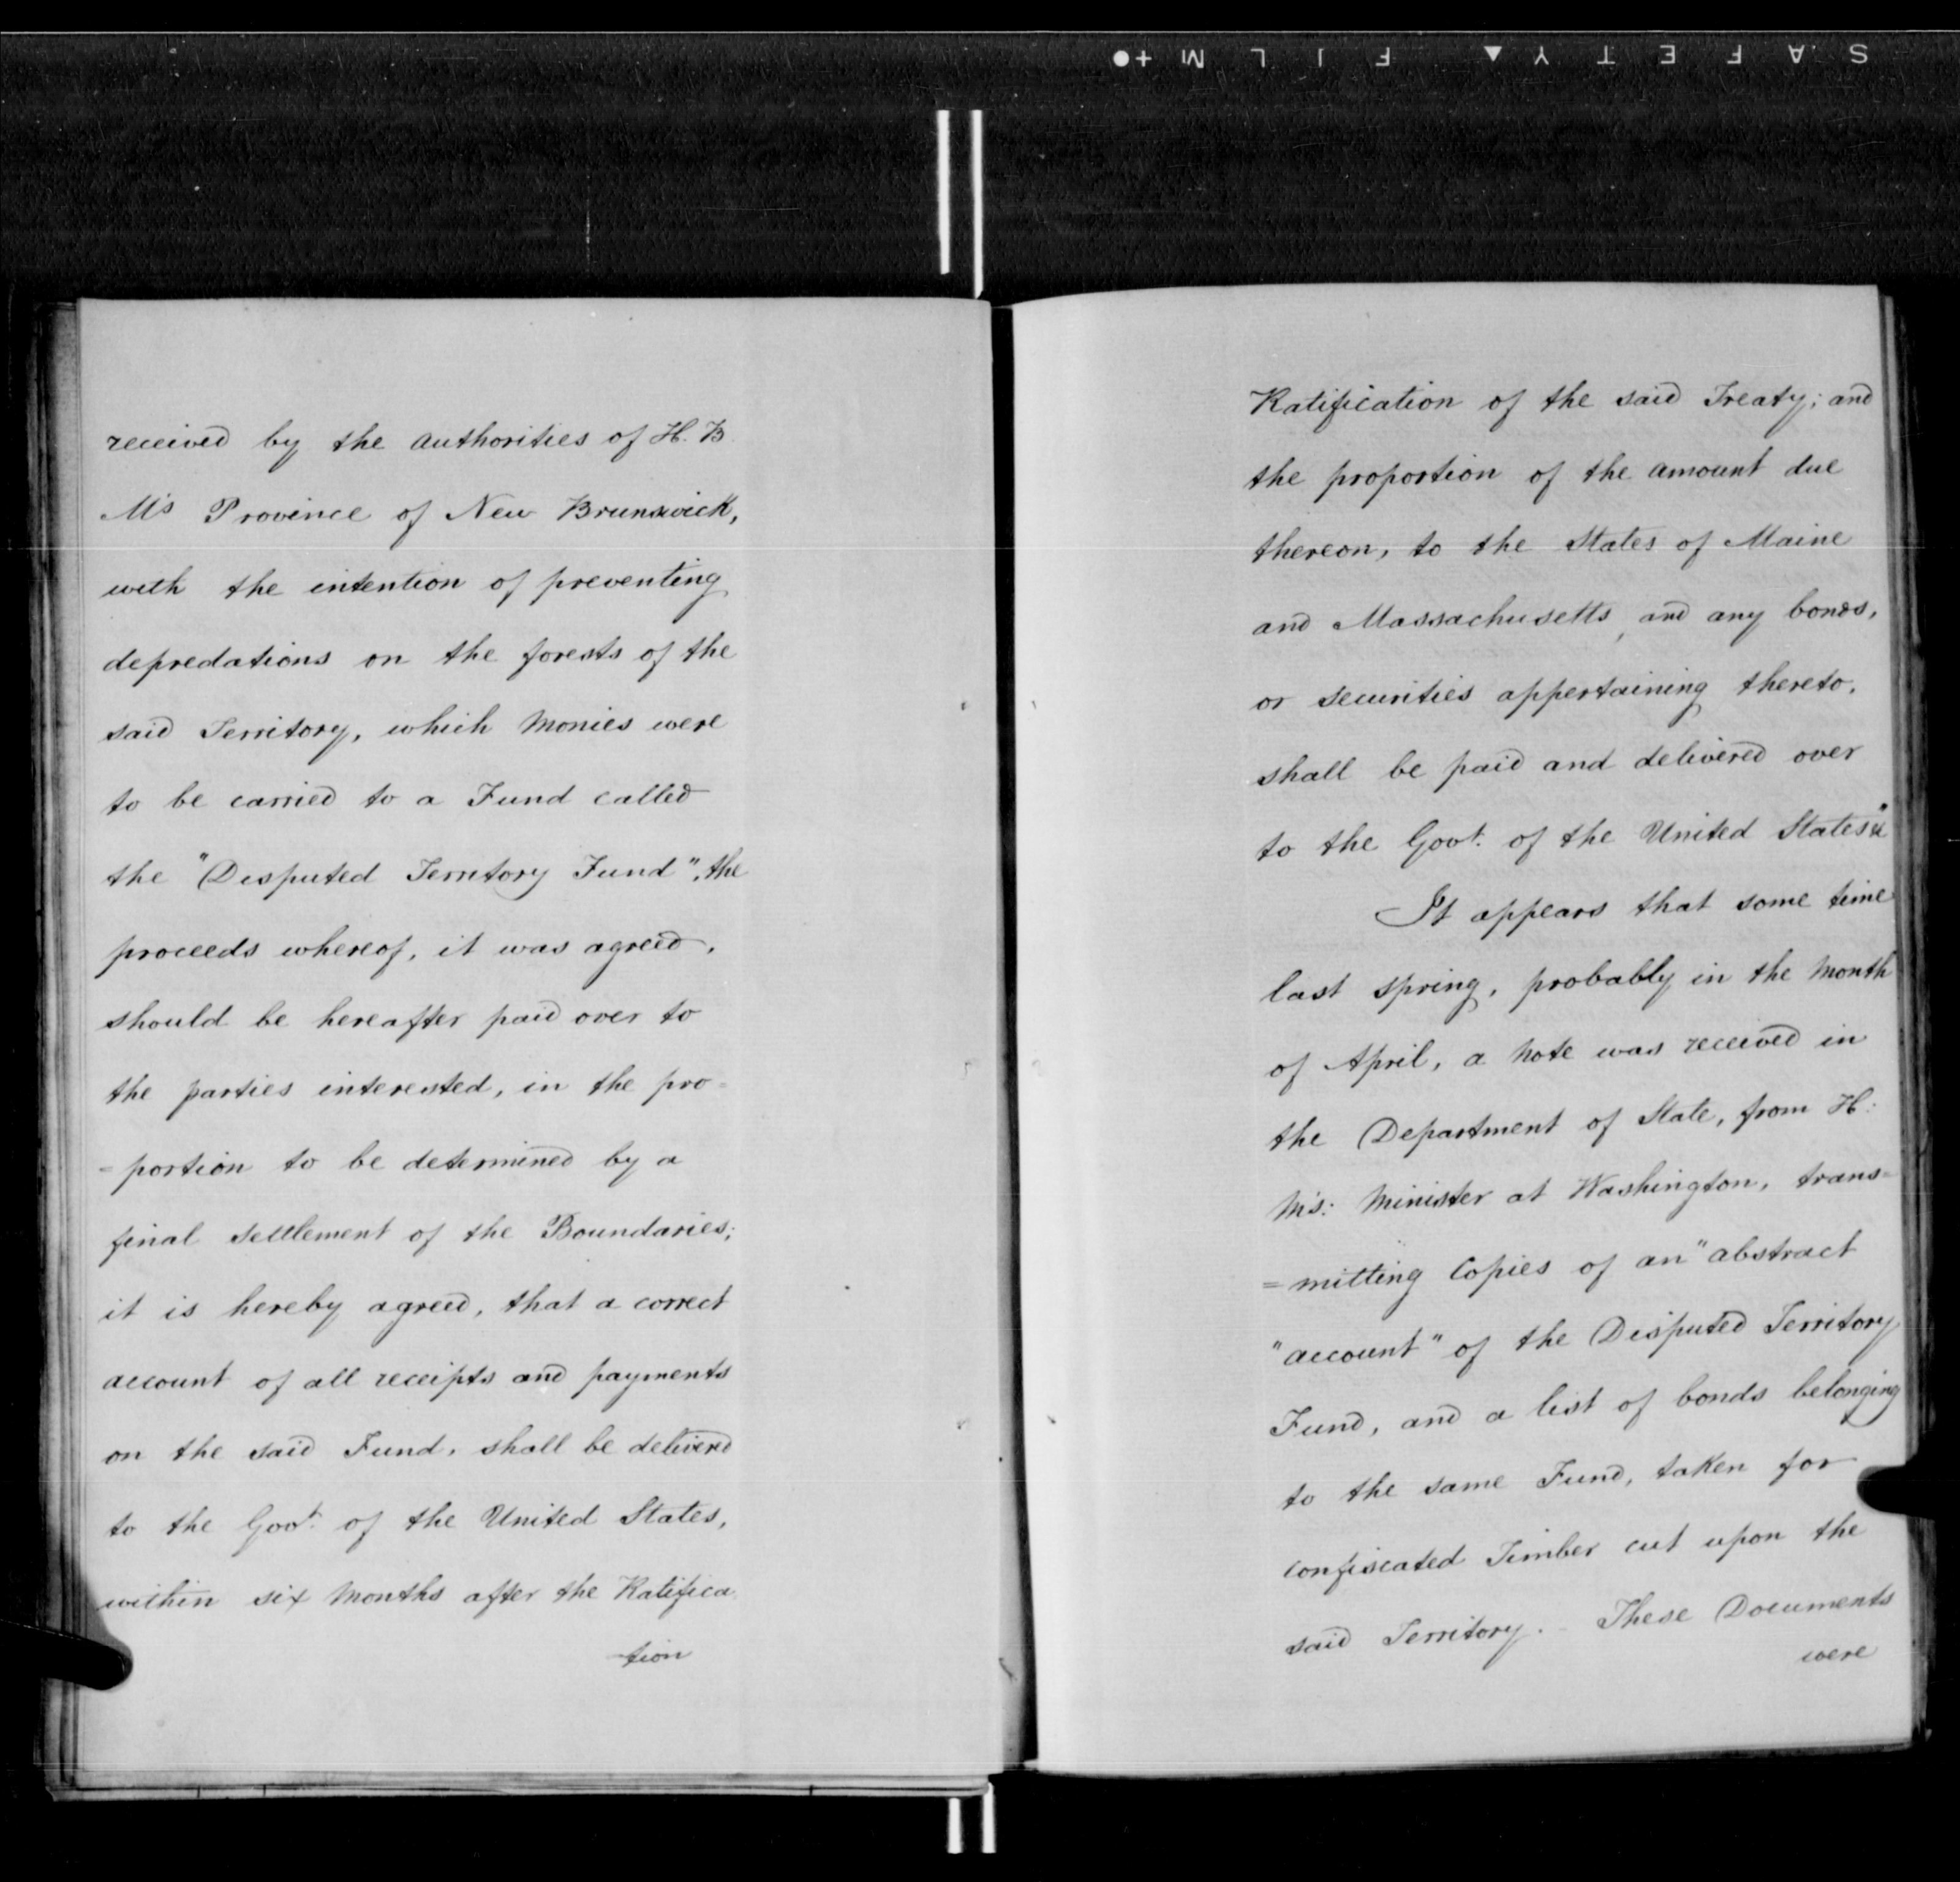 SAFETY ▲ FILM + ●
received by the authorities of H. B.
M's Province of New Brunswick,
with the intention of preventing
depredations on the forests of the
said Territory, which Monies were
to be carried to a Fund called
the "Disputed Territory Fund", the
proceeds whereof, it was agreed,
should be hereafter paid over to
the parties interested, in the pro=
=portion to be determined by a
final settlement of the Boundaries;
it is hereby agreed, that a correct
account of all receipts and payments
on the said Fund, shall be delivered
to the Govt. of the United States,
within six Months after the Ratifica
tion
Ratification of the said Treaty; and
the proportion of the amount due
thereon, to the States of Maine
and Massachusetts, and any bonds,
or securities appertaining thereto,
shall be paid and delivered over
to the Govt. of the United States"
It appears that some time
last spring, probably in the Month
of April, a Note was received in
the Department of State, from H:
M's: Minister at Washington, trans=
=mitting Copies of an "abstract
"account" of the Disputed Territory
Fund, and a list of bonds belonging
to the same Fund, taken for
confiscated Timber cut upon the
said Territory. These Documents
were